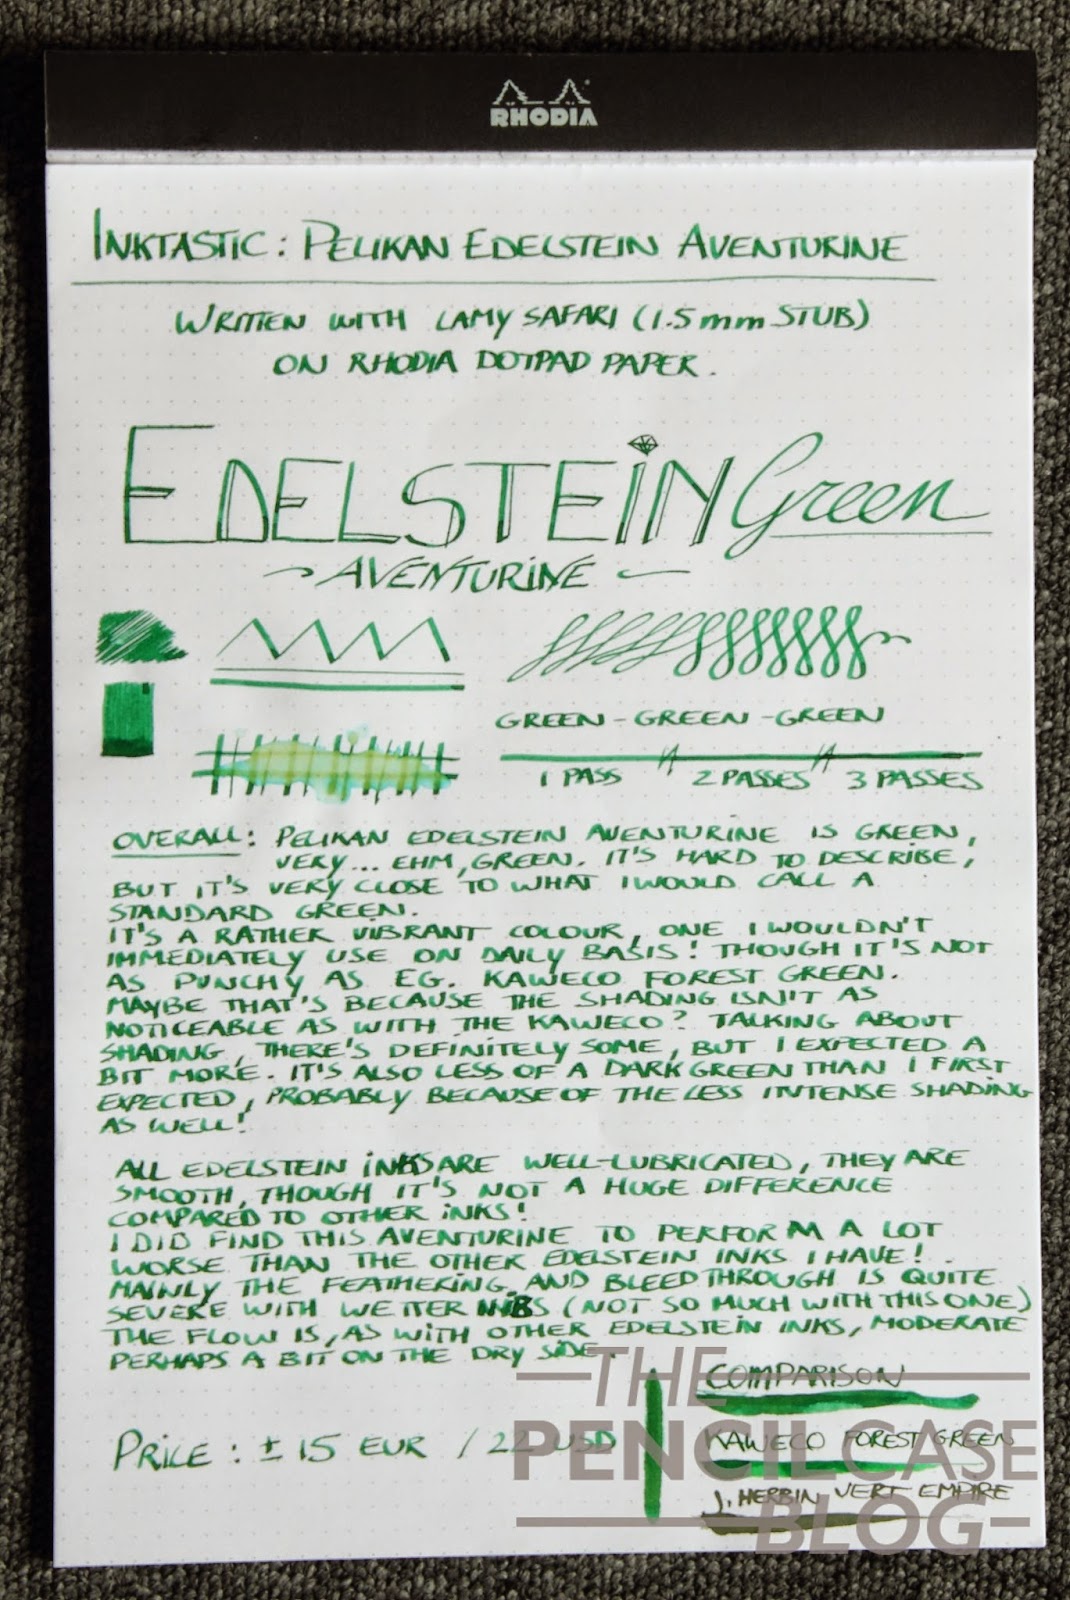 RHODIA
INKTASTIC: PELIKAN EDELSTEIN AVENTURINE
WRITTEN WITH LAMY SAFARI (1.5mm STUB)
ON RHODIA DOTPAD PAPER.
EDELSTEIN Green
~ AVENTURINE ~
GREEN - GREEN - GREEN
1 PASS 2 PASSES 3 PASSES
OVERALL: PELIKAN EDELSTEIN AVENTURINE IS GREEN,
VERY... EHM, GREEN. IT'S HARD TO DESCRIBE,
BUT IT'S VERY CLOSE TO WHAT I WOULD CALL A
STANDARD GREEN.
IT'S A RATHER VIBRANT COLOUR, ONE I WOULDN'T
IMMEDIATELY USE ON DAILY BASIS! THOUGH IT'S NOT
AS PUNCHY AS EG. KAWECO FOREST GREEN.
MAYBE THAT'S BECAUSE THE SHADING ISN'T AS
NOTICEABLE AS WITH THE KAWECO? TALKING ABOUT
SHADING, THERE'S DEFINITELY SOME, BUT I EXPECTED A
BIT MORE. IT'S ALSO LESS OF A DARK GREEN THAN I FIRST
EXPECTED, PROBABLY BECAUSE OF THE LESS INTENSE SHADING
AS WELL!
ALL EDELSTEIN INKS ARE WELL-LUBRICATED, THEY ARE
SMOOTH, THOUGH IT'S NOT A HUGE DIFFERENCE
COMPARED TO OTHER INKS!
I DID FIND THIS AVENTURINE TO PERFORM A LOT
WORSE THAN THE OTHER EDELSTEIN INKS I HAVE!
MAINLY THE FEATHERING AND BLEEDTHROUGH IS QUITE
SEVERE WITH WETTER NIBS (NOT SO MUCH WITH THIS ONE)
THE FLOW IS, AS WITH OTHER EDELSTEIN INKS, MODERATE
PERHAPS A BIT ON THE DRY SIDE.
COMPARISON
KAWECO FOREST GREEN
J. HERBIN VERT EMPIRE
PRICE: ± 15 EUR / 22 USD
THE
PENCILCASE
BLOG